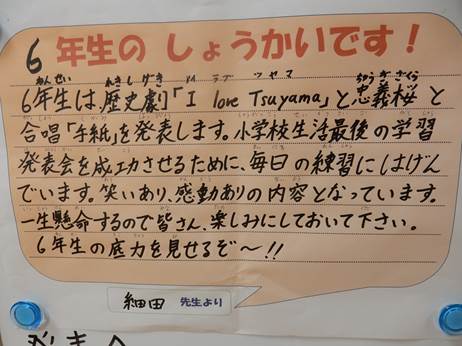 6年生の しょうかいです！
6年生は、歴史劇「I love Tsuyama」と忠義桜と
合唱「手紙」を発表します。小学校生活最後の学習
発表会を成功させるために、毎日の練習にはげん
でいます。笑いあり、感動ありの内容となっています。
一生懸命するので皆さん、楽しみにしておいて下さい。
6年生の底力を見せるぞ〜!!
細田 先生より